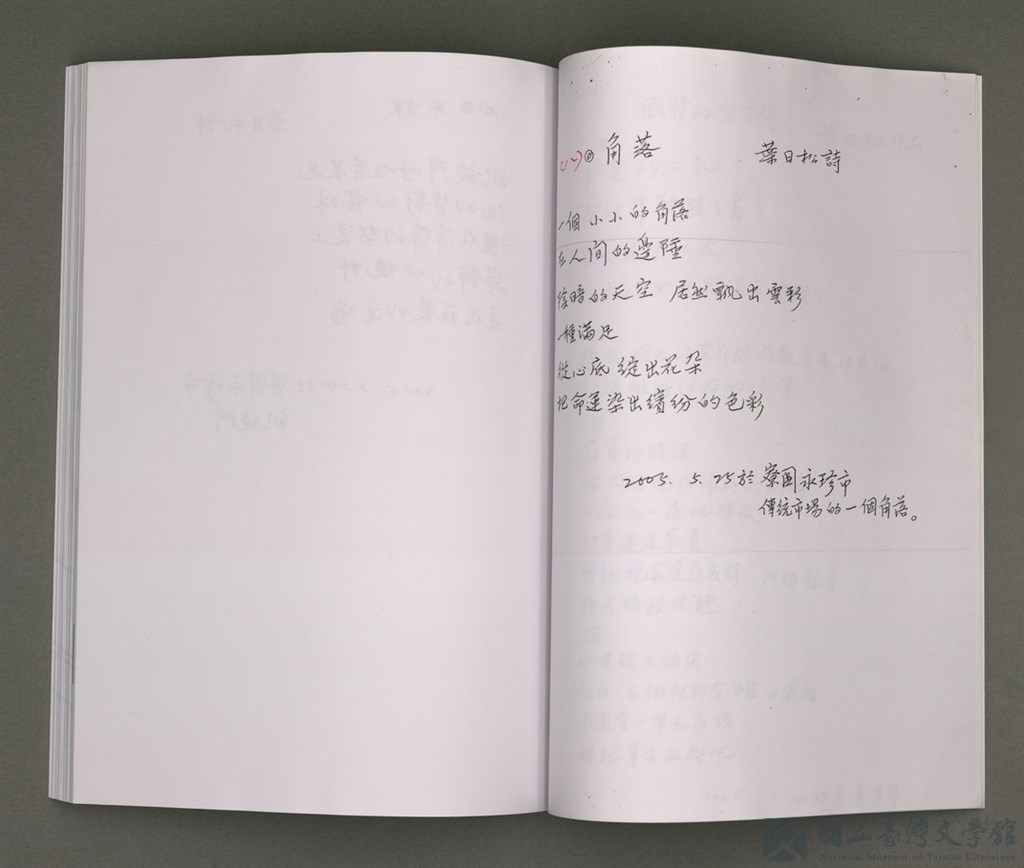 角落 葉日松詩
一個小小的角落
在人間的邊陲
陰暗的天空 居然飄出雲彩
一種滿足
從心底綻出花朵
把命運染出繽紛的色彩
2005. 5. 25於寮國永珍市
傳統市場的一個角落。
國立臺灣文學館
National Museum of Taiwan Literature